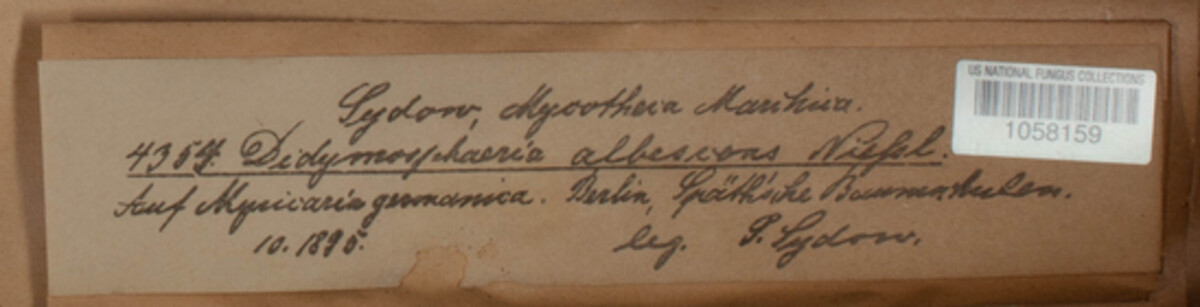 Sydow, Mycotheca Marchica.
4354. Didymosphaeria albescens Niessl.
Auf Myricaria germanica. Berlin, Späth'sche Baumschulen.
10. 1895.
leg. P. Sydow.
US NATIONAL FUNGUS COLLECTIONS
1058159